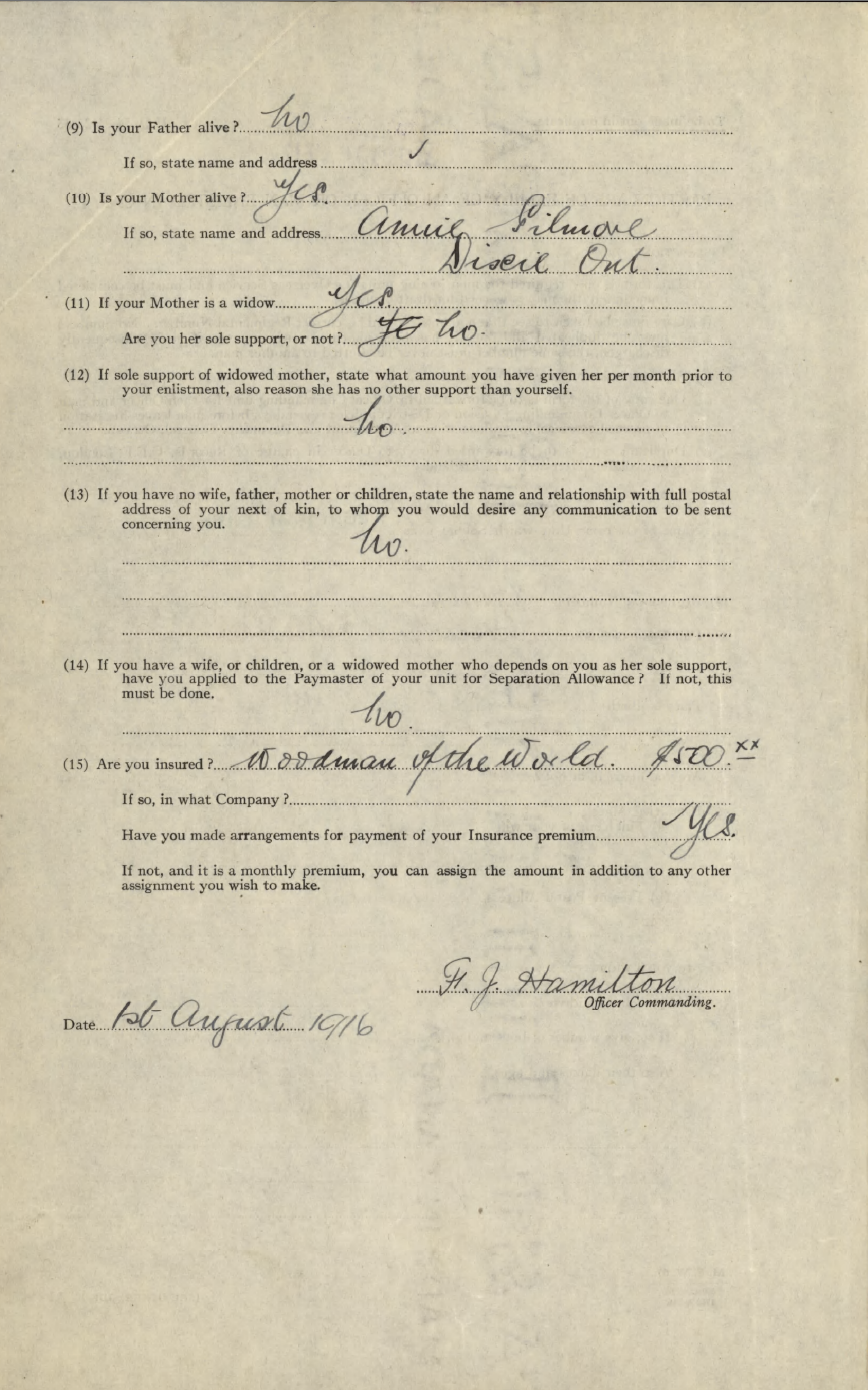 (9) Is your Father alive? No
If so, state name and address
(10) Is your Mother alive? Yes.
If so, state name and address Annie Gilmore
Dixie Ont.
(11) If your Mother is a widow Yes.
Are you her sole support, or not? No.
(12) If sole support of widowed mother, state what amount you have given her per month prior to
your enlistment, also reason she has no other support than yourself.
No.
(13) If you have no wife, father, mother or children, state the name and relationship with full postal
address of your next of kin, to whom you would desire any communication to be sent
concerning you.
No.
(14) If you have a wife, or children, or a widowed mother who depends on you as her sole support,
have you applied to the Paymaster of your unit for Separation Allowance? If not, this
must be done.
No.
(15) Are you insured? Woodman of the World. $500.xx
If so, in what Company?
Have you made arrangements for payment of your Insurance premium Yes.
If not, and it is a monthly premium, you can assign the amount in addition to any other
assignment you wish to make.
F. J. Hamilton
Officer Commanding.
Date 1st August 1916